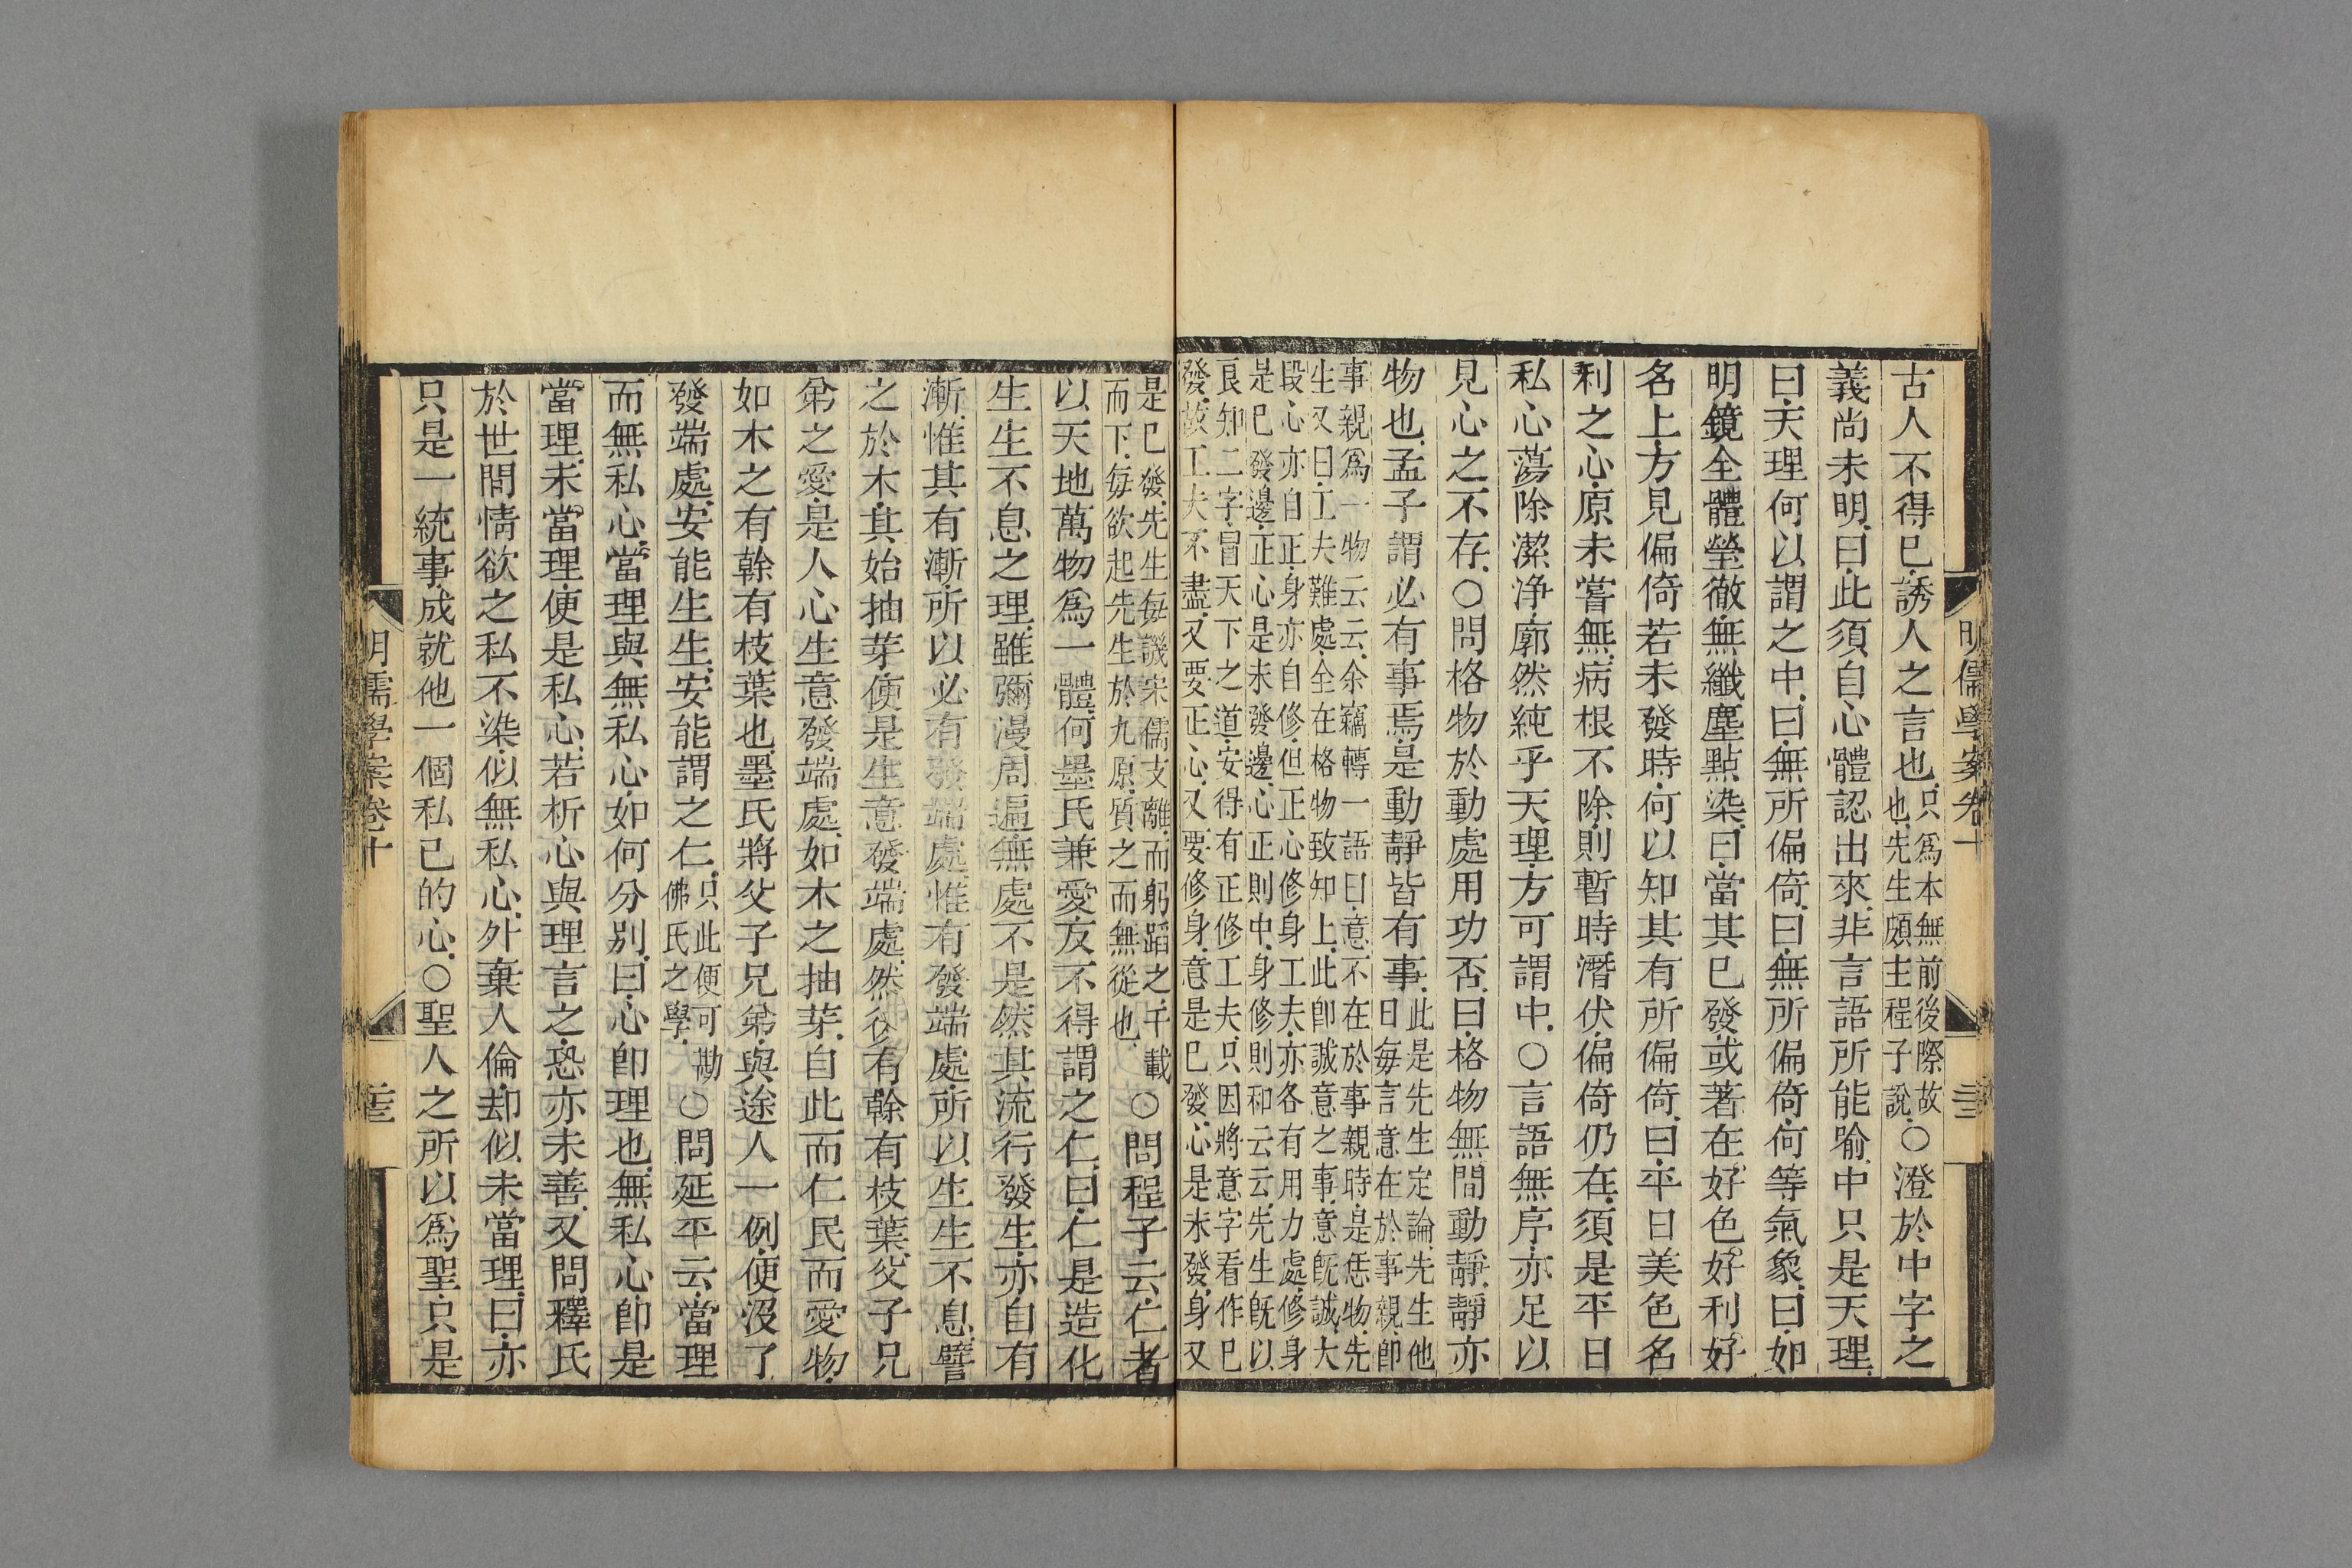 明儒學案卷十
古人不得已誘人之言也只爲本無前後際故也先生頗主程子說○澄於中字之
義尚未明曰此須自心體認出來非言語所能喻中只是天理
曰天理何以謂之中曰無所偏倚曰無所偏倚何等氣象曰如
明鏡全體瑩徹無纖塵點染曰當其已發或著在好色好利好
名上方見偏倚若未發時何以知其有所偏倚曰平日美色名
利之心原未嘗無病根不除則暫時潛伏偏倚仍在須是平日
私心蕩除潔净廓然純乎天理方可謂中○言語無序亦足以
見心之不存○問格物於動處用功否曰格物無間動靜靜亦
物也孟子謂必有事焉是動靜皆有事此是先生定論先生他日每言意在於事親卽
事親爲一物云云余竊轉一語曰意不在於事親時是恁物先
生又曰工夫難處全在格物致知上此卽誠意之事意旣誠大
段心亦自正身亦自修但正心修身工夫亦各有用力處修身
是已發邊正心是未發邊心正則中身修則和云云先生旣以
良知二字冒天下之道安得有正修工夫只因將意字看作已
發故工夫不盡又要正心又要修身意是已發心是未發身又
是已發先生每譏宋儒支離而躬蹈之千載
而下每欲起先生於九原質之而無從也○問程子云仁者
以天地萬物爲一體何墨氏兼愛反不得謂之仁曰仁是造化
生生不息之理雖彌漫周遍無處不是然其流行發生亦自有
漸惟其有漸所以必有發端處惟有發端處所以生生不息譬
之於木其始抽芽便是生意發端處然後有幹有枝葉父子兄
弟之愛是人心生意發端處如木之抽芽自此而仁民而愛物
如木之有幹有枝葉也墨氏將父子兄弟與途人一例便沒了
發端處安能生生安能謂之仁只此便可勘佛氏之學○問延平云當理
而無私心當理與無私心如何分别曰心卽理也無私心卽是
當理未當理便是私心若析心與理言之恐亦未善又問釋氏
於世間情欲之私不染似無私心外棄人倫却似未當理曰亦
只是一統事成就他一個私己的心○聖人之所以爲聖只是
明儒學案卷十